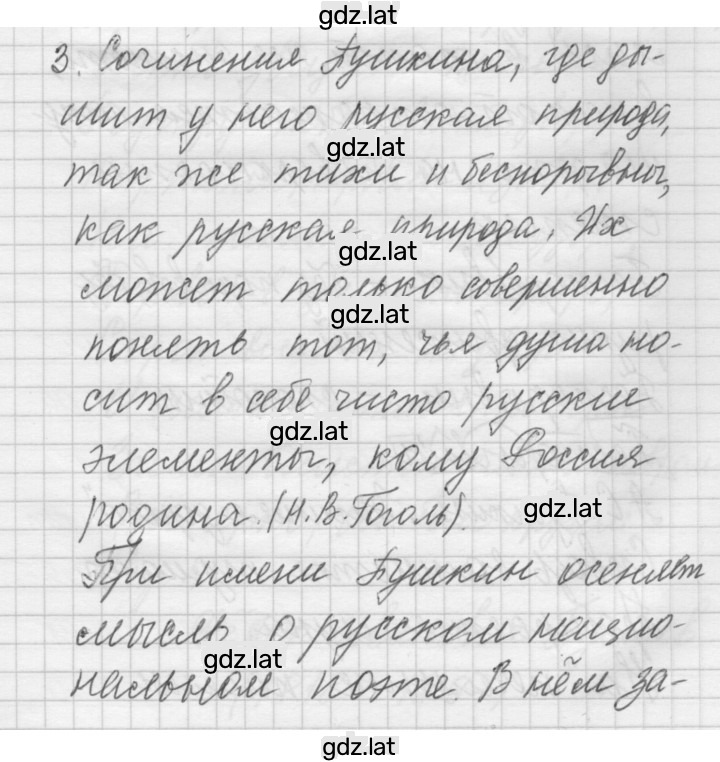 gdz.lat
3. Сочинения Пушкина, где ды-
шит у него русская природа,
gdz.lat
так же тихи и беспорывны,
как русская природа. Их
gdz.lat
может только совершенно
gdz.lat
понять тот, чья душа но-
сит в себе чисто русские
gdz.lat
элементы, кому Россия
родина. (Н.В.Гоголь).
gdz.lat
При имени Пушкин осеняет
мысль о русском нацио-
gdz.lat
нальном поэте. В нём за-
gdz.lat